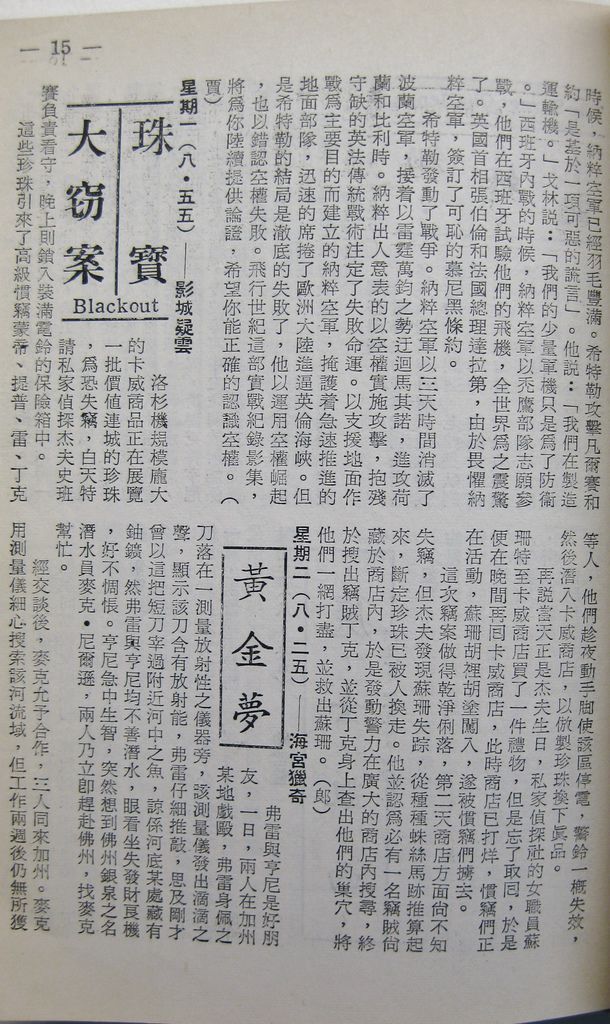 — 15 —
時候，納粹空軍已經羽毛豐滿。希特勒攻擊凡爾賽和
約「是基於一項可惡的謊言」。他說：「我們在製造
運輸機。」戈林說：「我們的少量軍機只是爲了防衞
。」西班牙內戰的時候，納粹空軍以禿鷹部隊志願參
戰，他們在西班牙試驗他們的飛機，全世界爲之震驚
了。英國首相張伯倫和法國總理達拉第，由於畏懼納
粹空軍，簽訂了可恥的慕尼黑條約。
希特勒發動了戰爭。納粹空軍以三天時間消滅了
波蘭空軍，接着以雷霆萬鈞之勢迂迴馬其諾，進攻荷
蘭和比利時。納粹出人意表的以空權實施攻擊，抱殘
守缺的英法傳統戰術注定了失敗命運。以支援地面作
戰爲主要目的而建立的納粹空軍，掩護着急速推進的
地面部隊，迅速的席捲了歐洲大陸進逼英倫海峽。但
是希特勒的結局是澈底的失敗了，他以運用空權崛起
，也以錯認空權失敗。飛行世紀這部實戰紀錄影集，
將爲你陸續提供論證，希望你能正確的認識空權。（
賈）
星期一（八·五五）——影城疑雲
珠寶
大窃案
Blackout
洛杉機規模龐大
的卡威商品正在展覽
一批價值連城的珍珠
，爲恐失竊，白天特
請私家偵探杰夫史班
賽負責看守，晚上則鎖入裝滿電鈴的保險箱中。
這些珍珠引來了高級慣竊蒙喬、提普、雷、丁克
等人，他們趁夜動手脚使該區停電，警鈴一概失效，
然後潛入卡威商店，以倣製珍珠換下眞品。
再說當天正是杰夫生日，私家偵探社的女職員蘇
珊特至卡威商店買了一件禮物，但是忘了取囘，於是
便在晚間再囘卡威商店，此時商店已打烊，慣竊們正
在活動，蘇珊胡裡胡塗闖入，遂被慣竊們擄去。
這次竊案做得乾淨俐落，第二天商店方面尙不知
失竊，但杰夫發現蘇珊失踪，從種種蛛絲馬跡推算起
來，斷定珍珠已被人換走。他並認爲必有一名竊賊尙
藏於商店內，於是發動警力在廣大的商店內搜尋，終
於搜出竊賊丁克，並從丁克身上查出他們的巢穴，將
他們一網打盡，並救出蘇珊。（郎）
星期二（八·二五）——海宮獵奇
黃金夢
弗雷與亨尼是好朋
友，一日，兩人在加州
某地戲毆，弗雷身佩之
刀落在一測量放射性之儀器旁，該測量儀發出滴滴之
聲，顯示該刀含有放射能，弗雷仔細推敲，思及剛才
曾以這把短刀宰過附近河中之魚，諒係河底某處藏有
鈾鑛，然弗雷與亨尼均不善潛水，眼看坐失發財良機
，好不惆悵。亨尼急中生智，突然想到佛州銀泉之名
潛水員麥克·尼爾遜，兩人乃立卽趕赴佛州，找麥克
幫忙。
經交談後，麥克允予合作，三人同來加州。麥克
用測量儀細心搜索該河流域，但工作兩週後仍無所獲